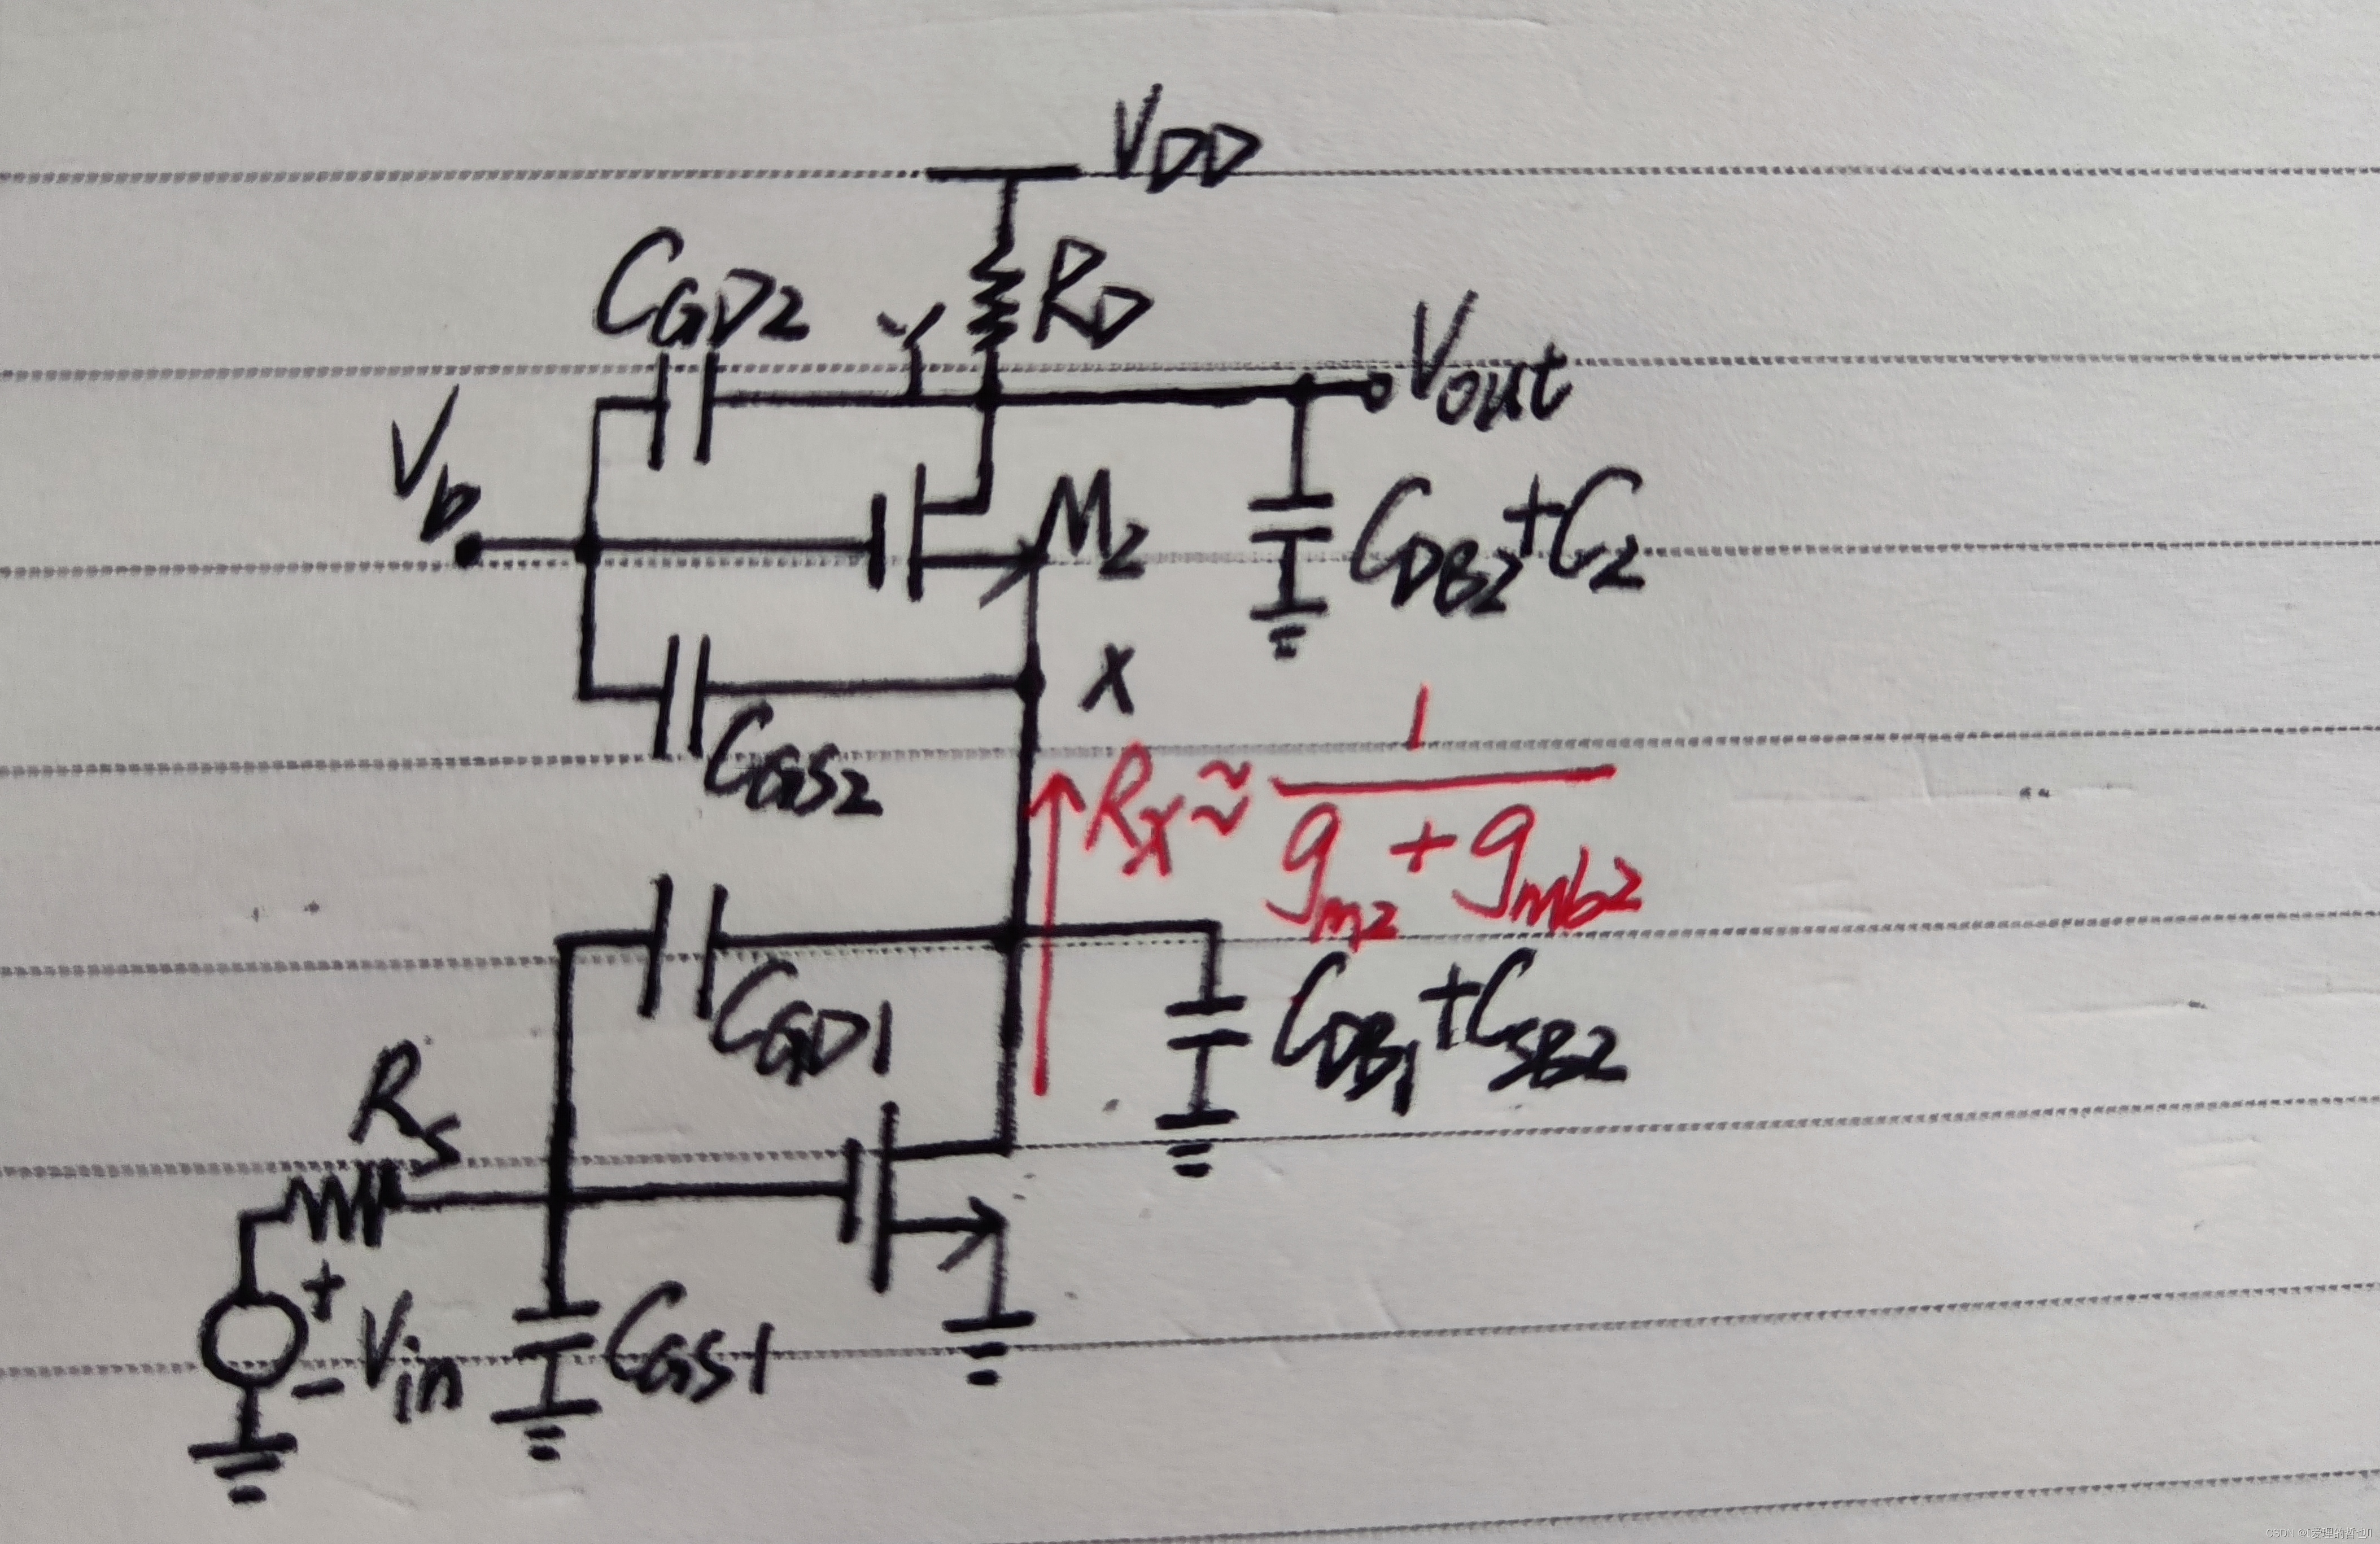 VDD
CGD2
Y
RD
Vout
Vb
M2
CDB2+C2
X
CGS2
Rx≈1/(gm2+gmb2)
CGD1
CDB1+CSB2
RS
+
Vin
-
CGS1